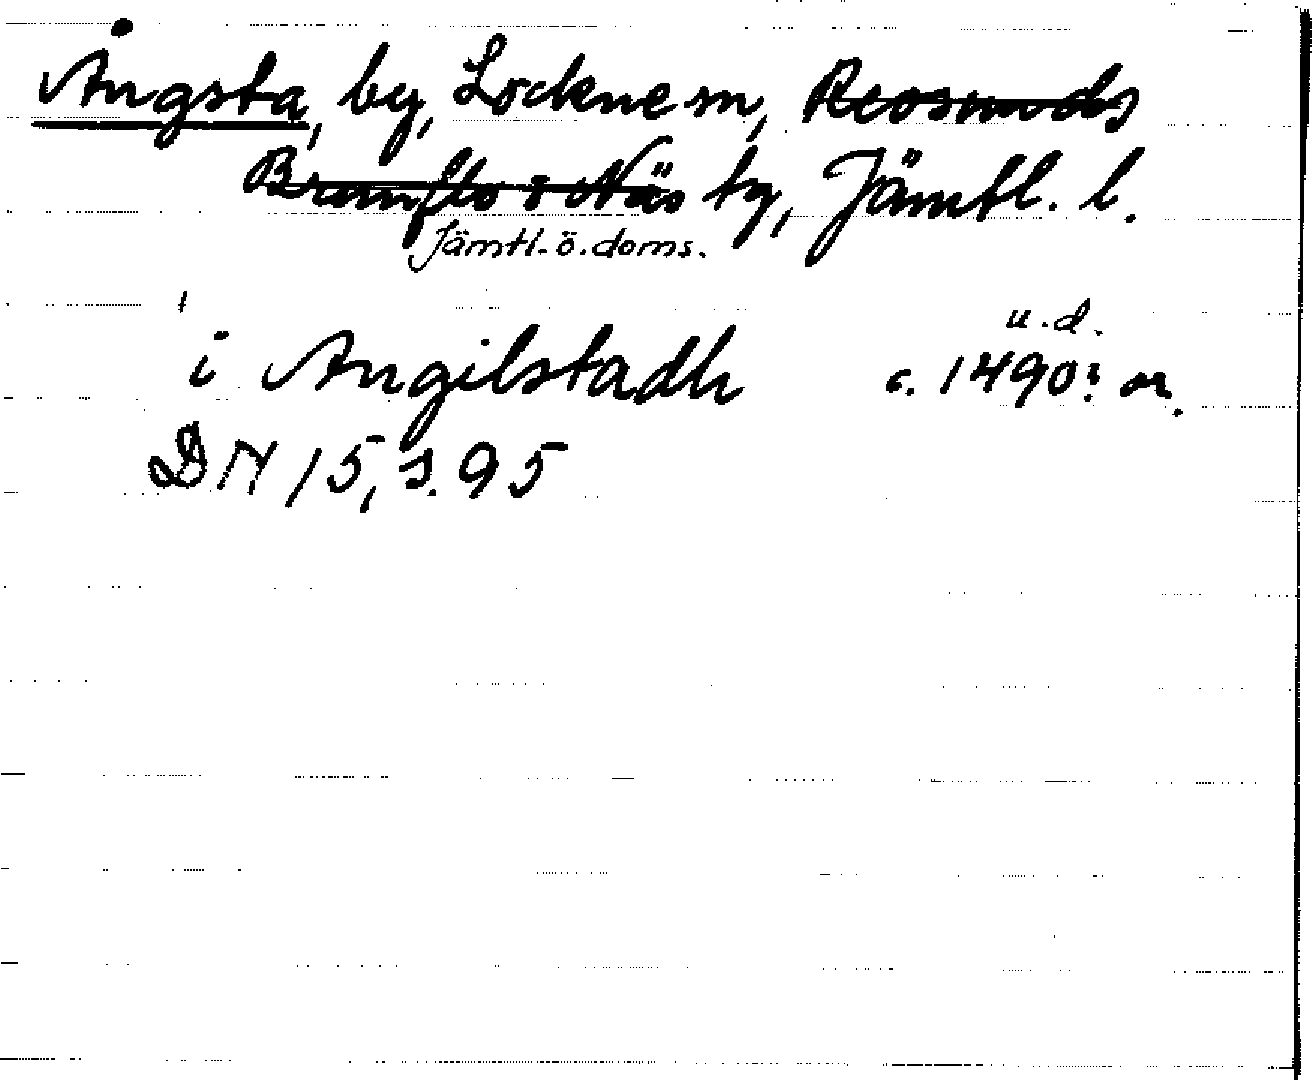 Ångsta, by, Lockne sn, Revsunds
Brunflo o Näs tg, Jämtl. l.
Jämtl. ö. doms.
u.d.
i Angilstadh c. 1490? or.
DN 15, s. 95